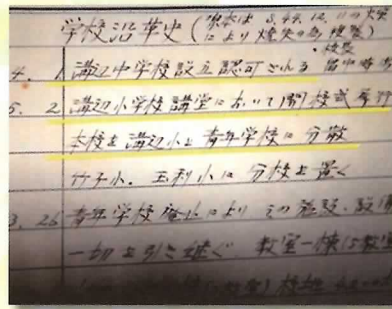 学校沿革史(原本は S.44.12.11の火災
により焼失の為 複製)
・複製
4. 1 溝辺中学校設立認可される
5. 2 溝辺小学校講堂において開校式挙行
本校を溝辺小と青年学校に分散
竹子小、玉利小に分校を置く
3. 26 青年学校廃止により その施設、設備
一切を引き継ぐ 教室一棟(5教室